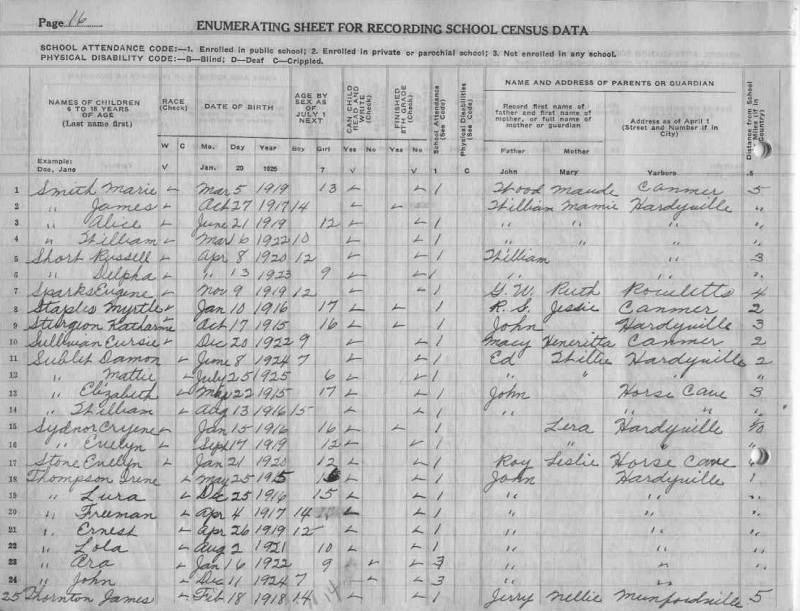 Page 16
ENUMERATING SHEET FOR RECORDING SCHOOL CENSUS DATA
SCHOOL ATTENDANCE CODE:—1. Enrolled in public school; 2. Enrolled in private or parochial school; 3. Not enrolled in any school.
PHYSICAL DISABILITY CODE:—B—Blind; D—Deaf C—Crippled.
NAMES OF CHILDREN 6 TO 18 YEARS OF AGE (Last name first) RACE (Check) DATE OF BIRTH AGE BY SEX AS OF JULY 1 NEXT CAN CHILD READ AND WRITE (Check) FINISHED 8TH GRADE (Check) School Attendance (See Code) Physical Disabilities (See Code) NAME AND ADDRESS OF PARENTS OR GUARDIAN Distance from School
Record first name of father and first name of mother, or full name of mother or guardian Address as of April 1 (Street and Number if in City)
W C Mo. Day Year Boy Girl Yes No Yes No Father Mother
Example: Doe, Jane V Jan. 20 1925 7 V V 1 C John Mary Yarboro .5
1 Smith Marie Mar 5 1919 13 1 Wood Maude Canmer 5
2 " James Oct 27 1917 14 1 William Mamie Hardyville "
3 " Alice June 21 1919 12 1 " " " "
4 " William Mar 6 1922 10 1 " " " "
5 Short Russell Apr 8 1920 12 1 William " 3
6 " Delpha " 13 1923 9 1 " " "
7 Sparks Eugene Nov 9 1919 12 1 G.W. Ruth Rowletts 4
8 Staples Myrtle Jan 10 1916 17 1 R.S. Jessie Canmer 2
9 Sturgeon Katharine Oct 17 1915 16 1 John Hardyville 3
10 Sullivan Cursie Dec 20 1922 9 1 Macy Heneritta Canmer 2
11 Sublet Damon June 8 1924 7 1 Ed Willie Hardyville 2
12 " Mattie July 25 1925 6 1 " " " "
13 " Elizabeth May 22 1915 17 1 John Horse Cave 3
14 " William Aug 13 1916 15 1 " " " "
15 Sydnor Jan 15 1916 16 1 Lera Hardyville
16 " Evelyn Sept 17 1919 12 1 " " "
17 Stone Evelyn Jan 21 1920 12 1 Roy Leslie Horse Cave
18 Thompson Irene May 25 1915 1 John Hardyville 1
19 " Lura Dec 25 1916 15 1 " " "
20 " Freeman Apr 4 1917 14 1 " " "
21 " Ernest Apr 26 1919 12 1 " " "
22 " Lola Aug 2 1921 10 1 " " "
23 " Ara Jan 16 1922 9 3 " " "
24 " John Dec 11 1924 7 3 " " "
25 Thornton James Feb 18 1918 14 14 1 Jerry Nellie Munfordville 5